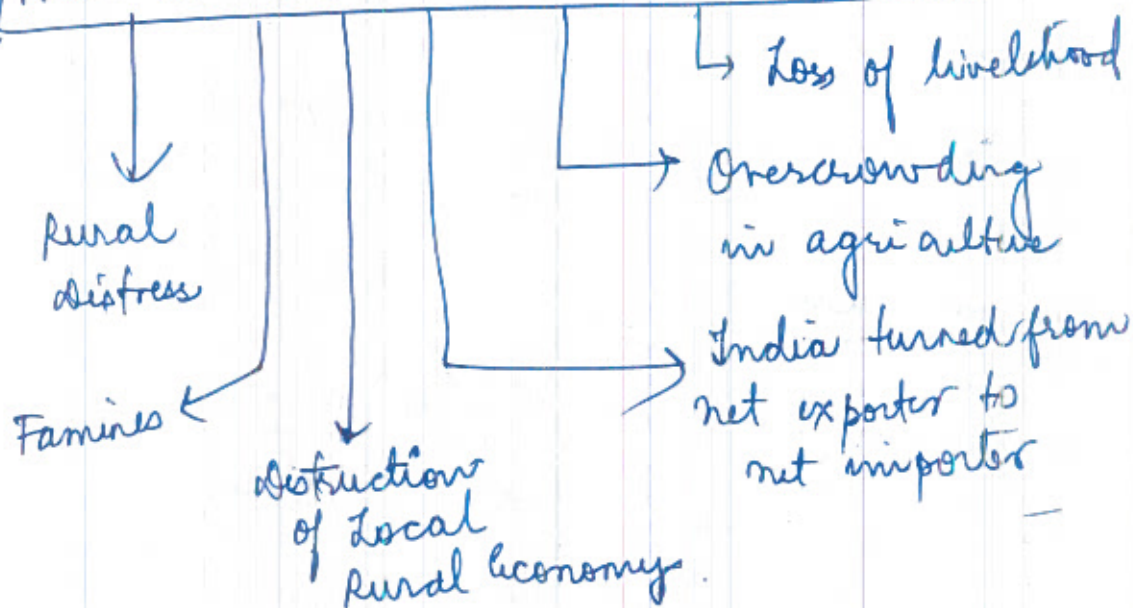 Loss of livelihood
Overcrowding
in agriculture
Rural
Distress
India turned from
net exporter to
net importer
Famines
Distruction
of Local
Rural Economy.